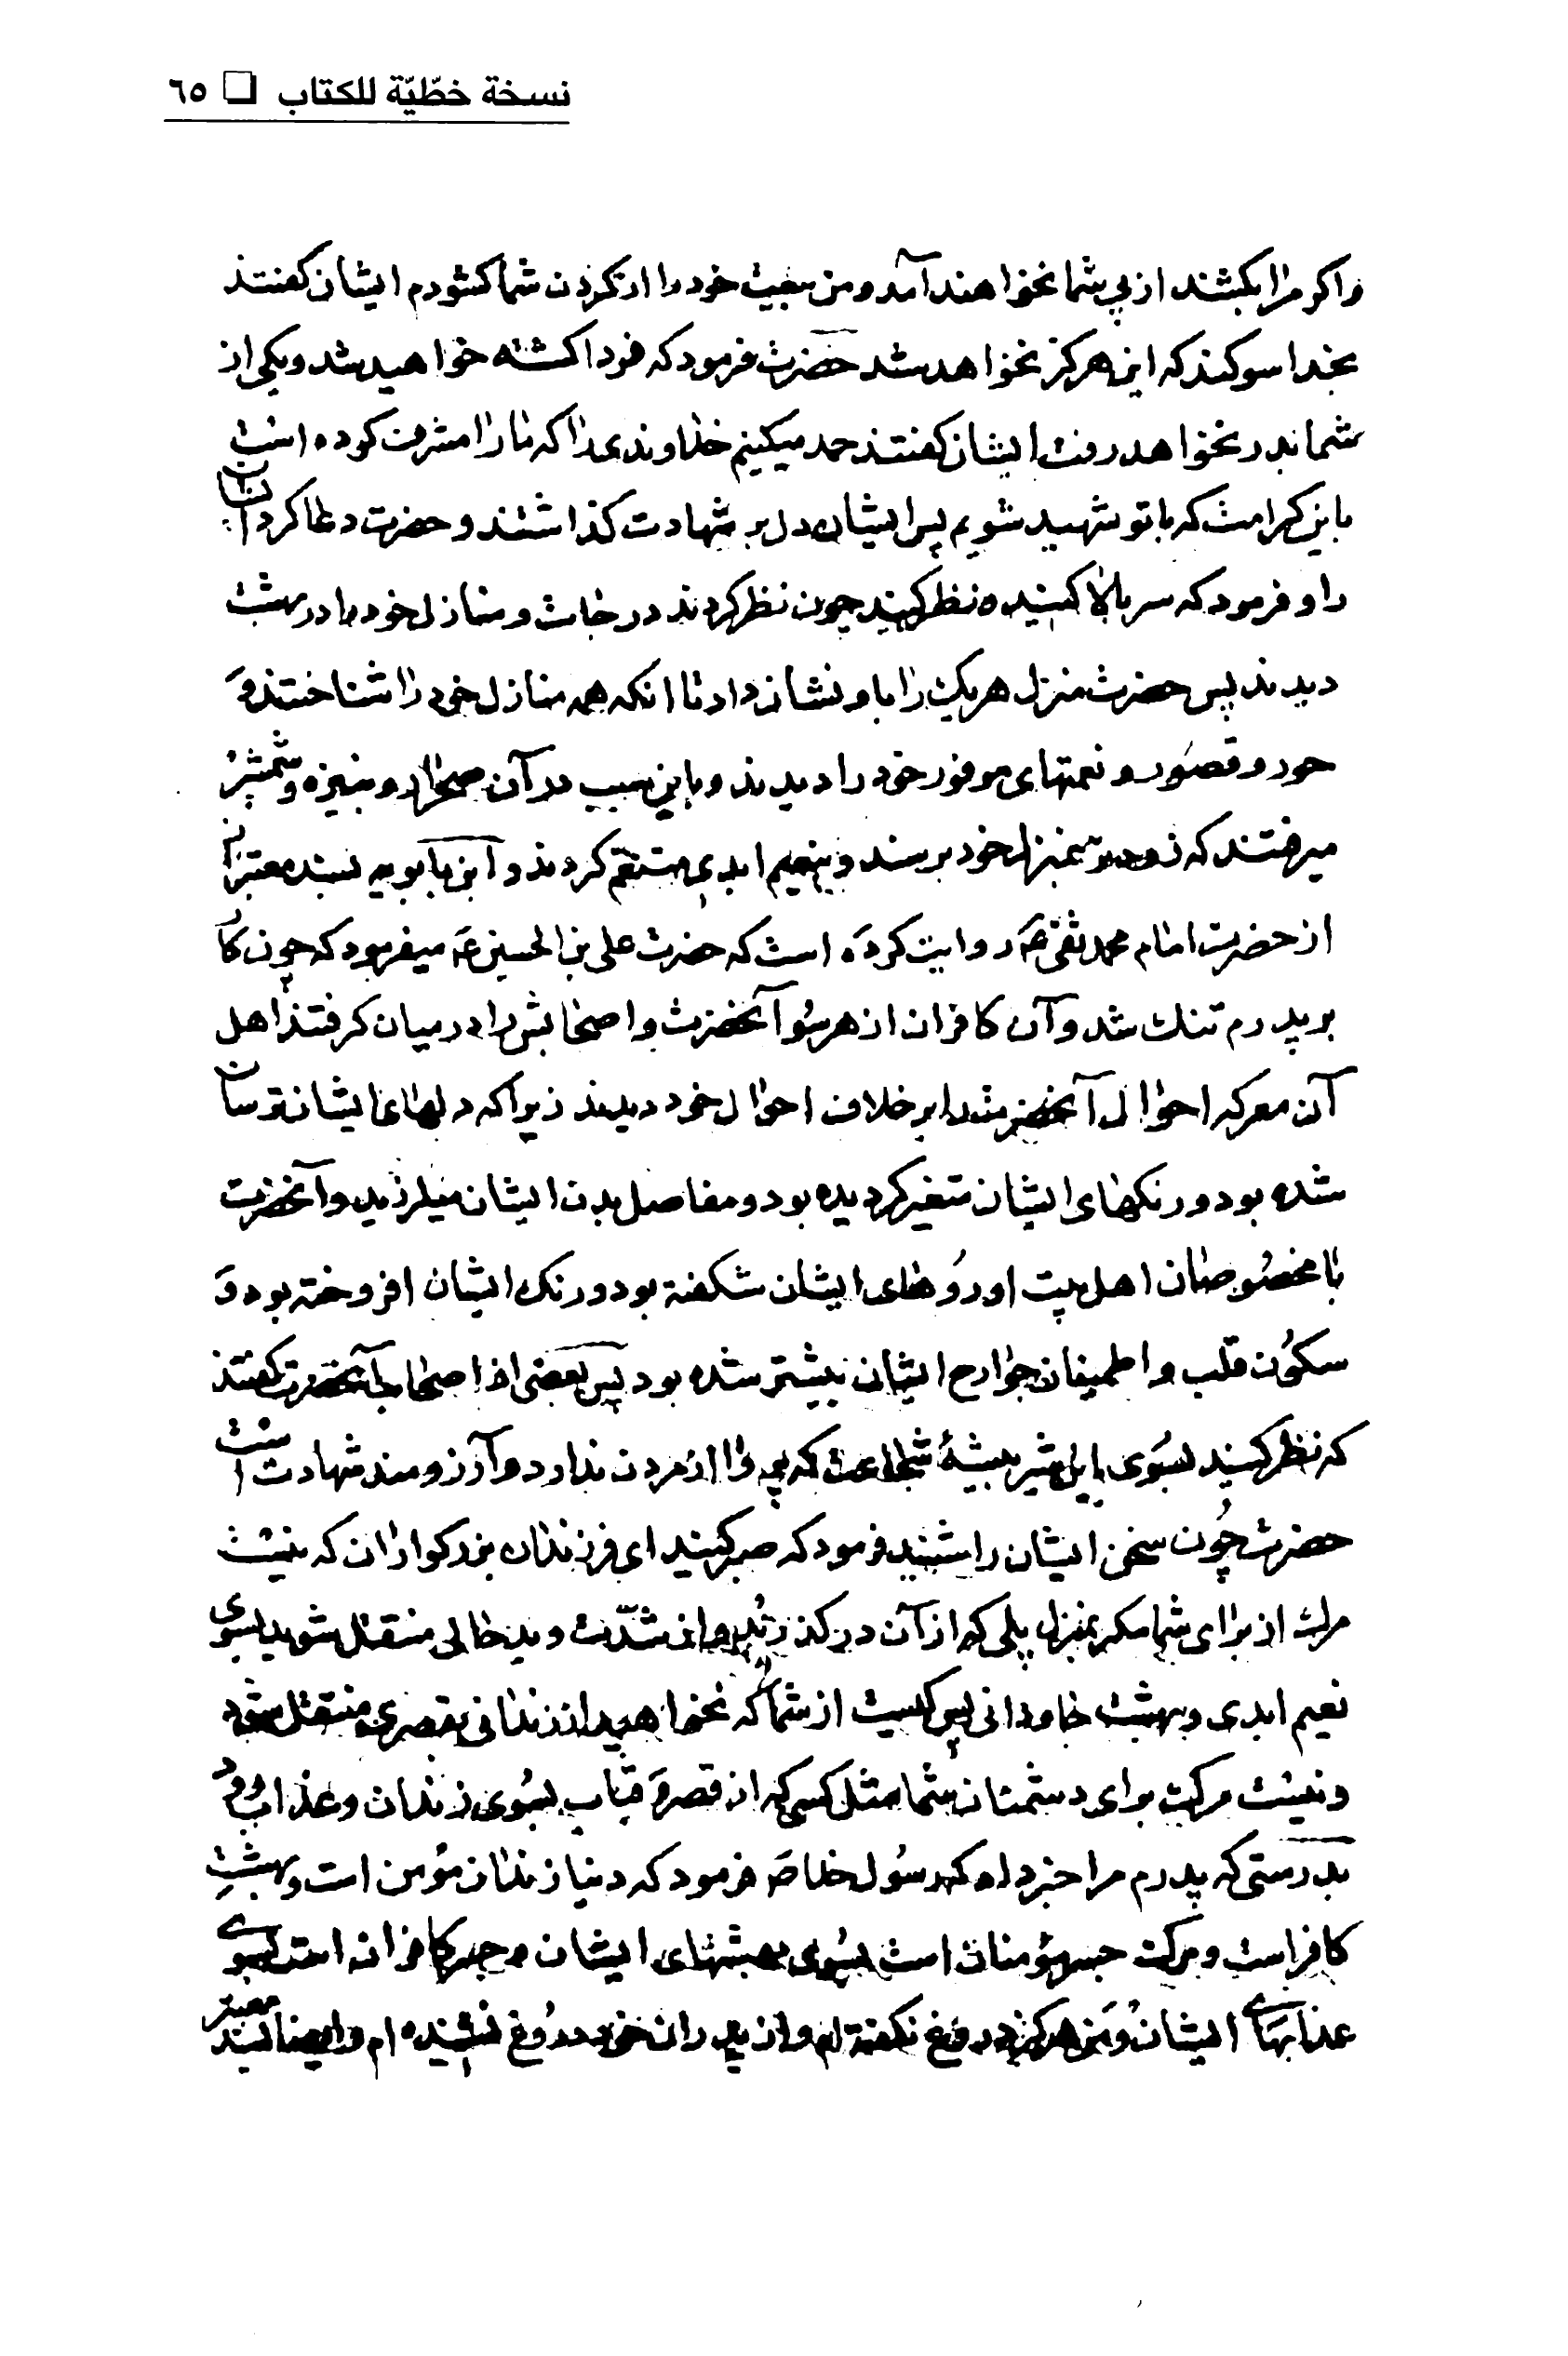 نسخة خطّيّة للكتاب □ ٦٥
واکر مرا بکشند از پی شما نخواهند آمد و من بیعت خود را از کردن شما کشودم ایشان کفتند
بخدا سوکند که این هرکز نخواهد شد حضرت فرمود که فردا کشته خواهید شد و یکی از
شما بدر نخواهد رفت ایشان کفتند حمد میکنیم خداوندی را که ما را مشرف کرده است
باین کرامت که با تو شهید شویم پس ایشان دل بر شهادت کذاشتند و حضرت دعا کرد ایشان
را و فرمود که سر بالا کنید و نظر کنید چون نظر کردند درجات و منازل خود را در بهشت
دیدند پس حضرت منزل هریک را باو نشان داد تا انکه همه منازل خود را شناختند و
حور و قصور و نعمتهای موفور خود را دیدند و باین سبب در آن صحرا رو بنیزه و شمشیر
میرفتند که زودتر بمنزل خود برسند و بنعیم ابدی متنعم کردند و ابن بابویه بسند معتبر
از حضرت امام محمد تقی ع روایت کرده است که حضرت علی بن الحسین ع میفرمود که چون کار
بر پدرم تنک شد و آن کافران از هر سو آنحضرت و اصحابش را در میان کرفتند اهل
آن معرکه احوال آنحضرت را بر خلاف احوال خود دیدند زیرا که دلهای ایشان ترسان
شده بود و رنکهای ایشان متغیر کردیده بود و مفاصل بدن ایشان میلرزید و آنحضرت
با مخصوصان اهل بیت او روهای ایشان شکفته بود و رنک ایشان افروخته بود و
سکون قلب و اطمینان جوارح ایشان بیشتر شده بود پس بعضی از اصحاب آنحضرت کفتند
که نظر کنید بسوی این شیر بیشۀ شجاعت که پروا از مردن ندارد و آرزومند شهادت است
حضرت چون سخن ایشان را شنید فرمود که صبر کنید ای فرزندان بزرکواران که نیست
مرک از برای شما مکر بمنزل پلی که از آن درکذرید و از شدّت و بدحالی منتقل شوید بسوی
نعیم ابدی و بهشت جاودانی پس کیست از شما که نخواهید از زندانی بقصری منتقل شود
و نیست مرک برای دشمنان شما مثل کسی که از قصر و قباب بسوی زندان و عذاب رود
بدرستی که پدرم مرا خبر داد که رسول خدا ص فرمود که دنیا زندان مؤمن است و بهشت
کافر است و مرک جسر مؤمنان است بسوی بهشتهای ایشان و جسر کافران است بسوی
عذابهای ایشان و من هرکز دروغ نکفته ام و از پدران خود دروغ نشنیده ام و ایضا بسند معتبر